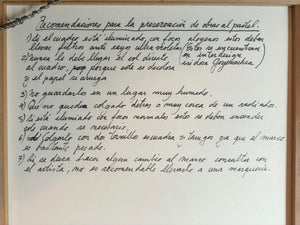 Recomendaciones para la preservación de obras al pastel.
1) Si el cuadro está iluminado con focos alogenos estos deben
llevar filtros anti rayo ultra violeta. (Estos se encuentran
2) Nunca le debe llegar el sol directo en interdesign
al cuadro, porque este se decolora isidora Goyenechea)
y el papel se arruga
3) No guardarlos en un lugar muy humedo.
4) Que no queden colgado detras o muy cerca de un radiador.
5) Si está iluminado con focos normales estos se deben encender
solo cuando se necesario.
6) Colgarlo con dos tornillo escuadra y tarugo ya que el marco
es bastante pesado.
7) Si se desea hacer algun cambio al marco consulta con
el artista, no se recomendable llevarlo a una marqueria.